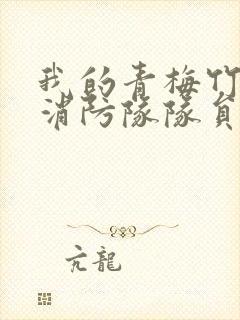 我的青梅竹
消防隊隊員
亢龍